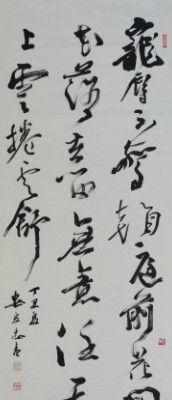 寵辱不驚庭前花開
花落去留無意任天
上雲捲雲舒
丁丑